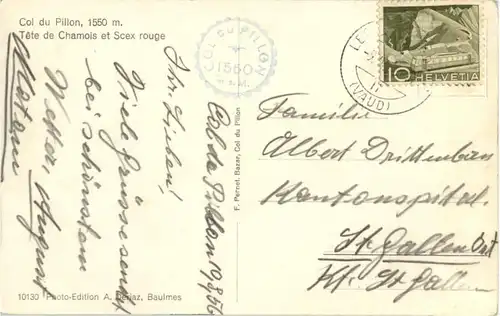 Col du Pillon, 1550 m.
Tête de Chamois et Scex rouge
COL DU PILLON
1550
m s.M.
HELVETIA
10
(VAUD)
Col de Pillon 10.8.56
Ihr Lieben!
Viele Grüsse sendet
bei schönstem
Wetter, August
F. Pernet, Bazar, Col du Pillon
Familie
Albert Drittenbass
Kantonspital
St. Gallen Ost
Kt. St Gallen
10130 Photo-Edition A. Deriaz, Baulmes